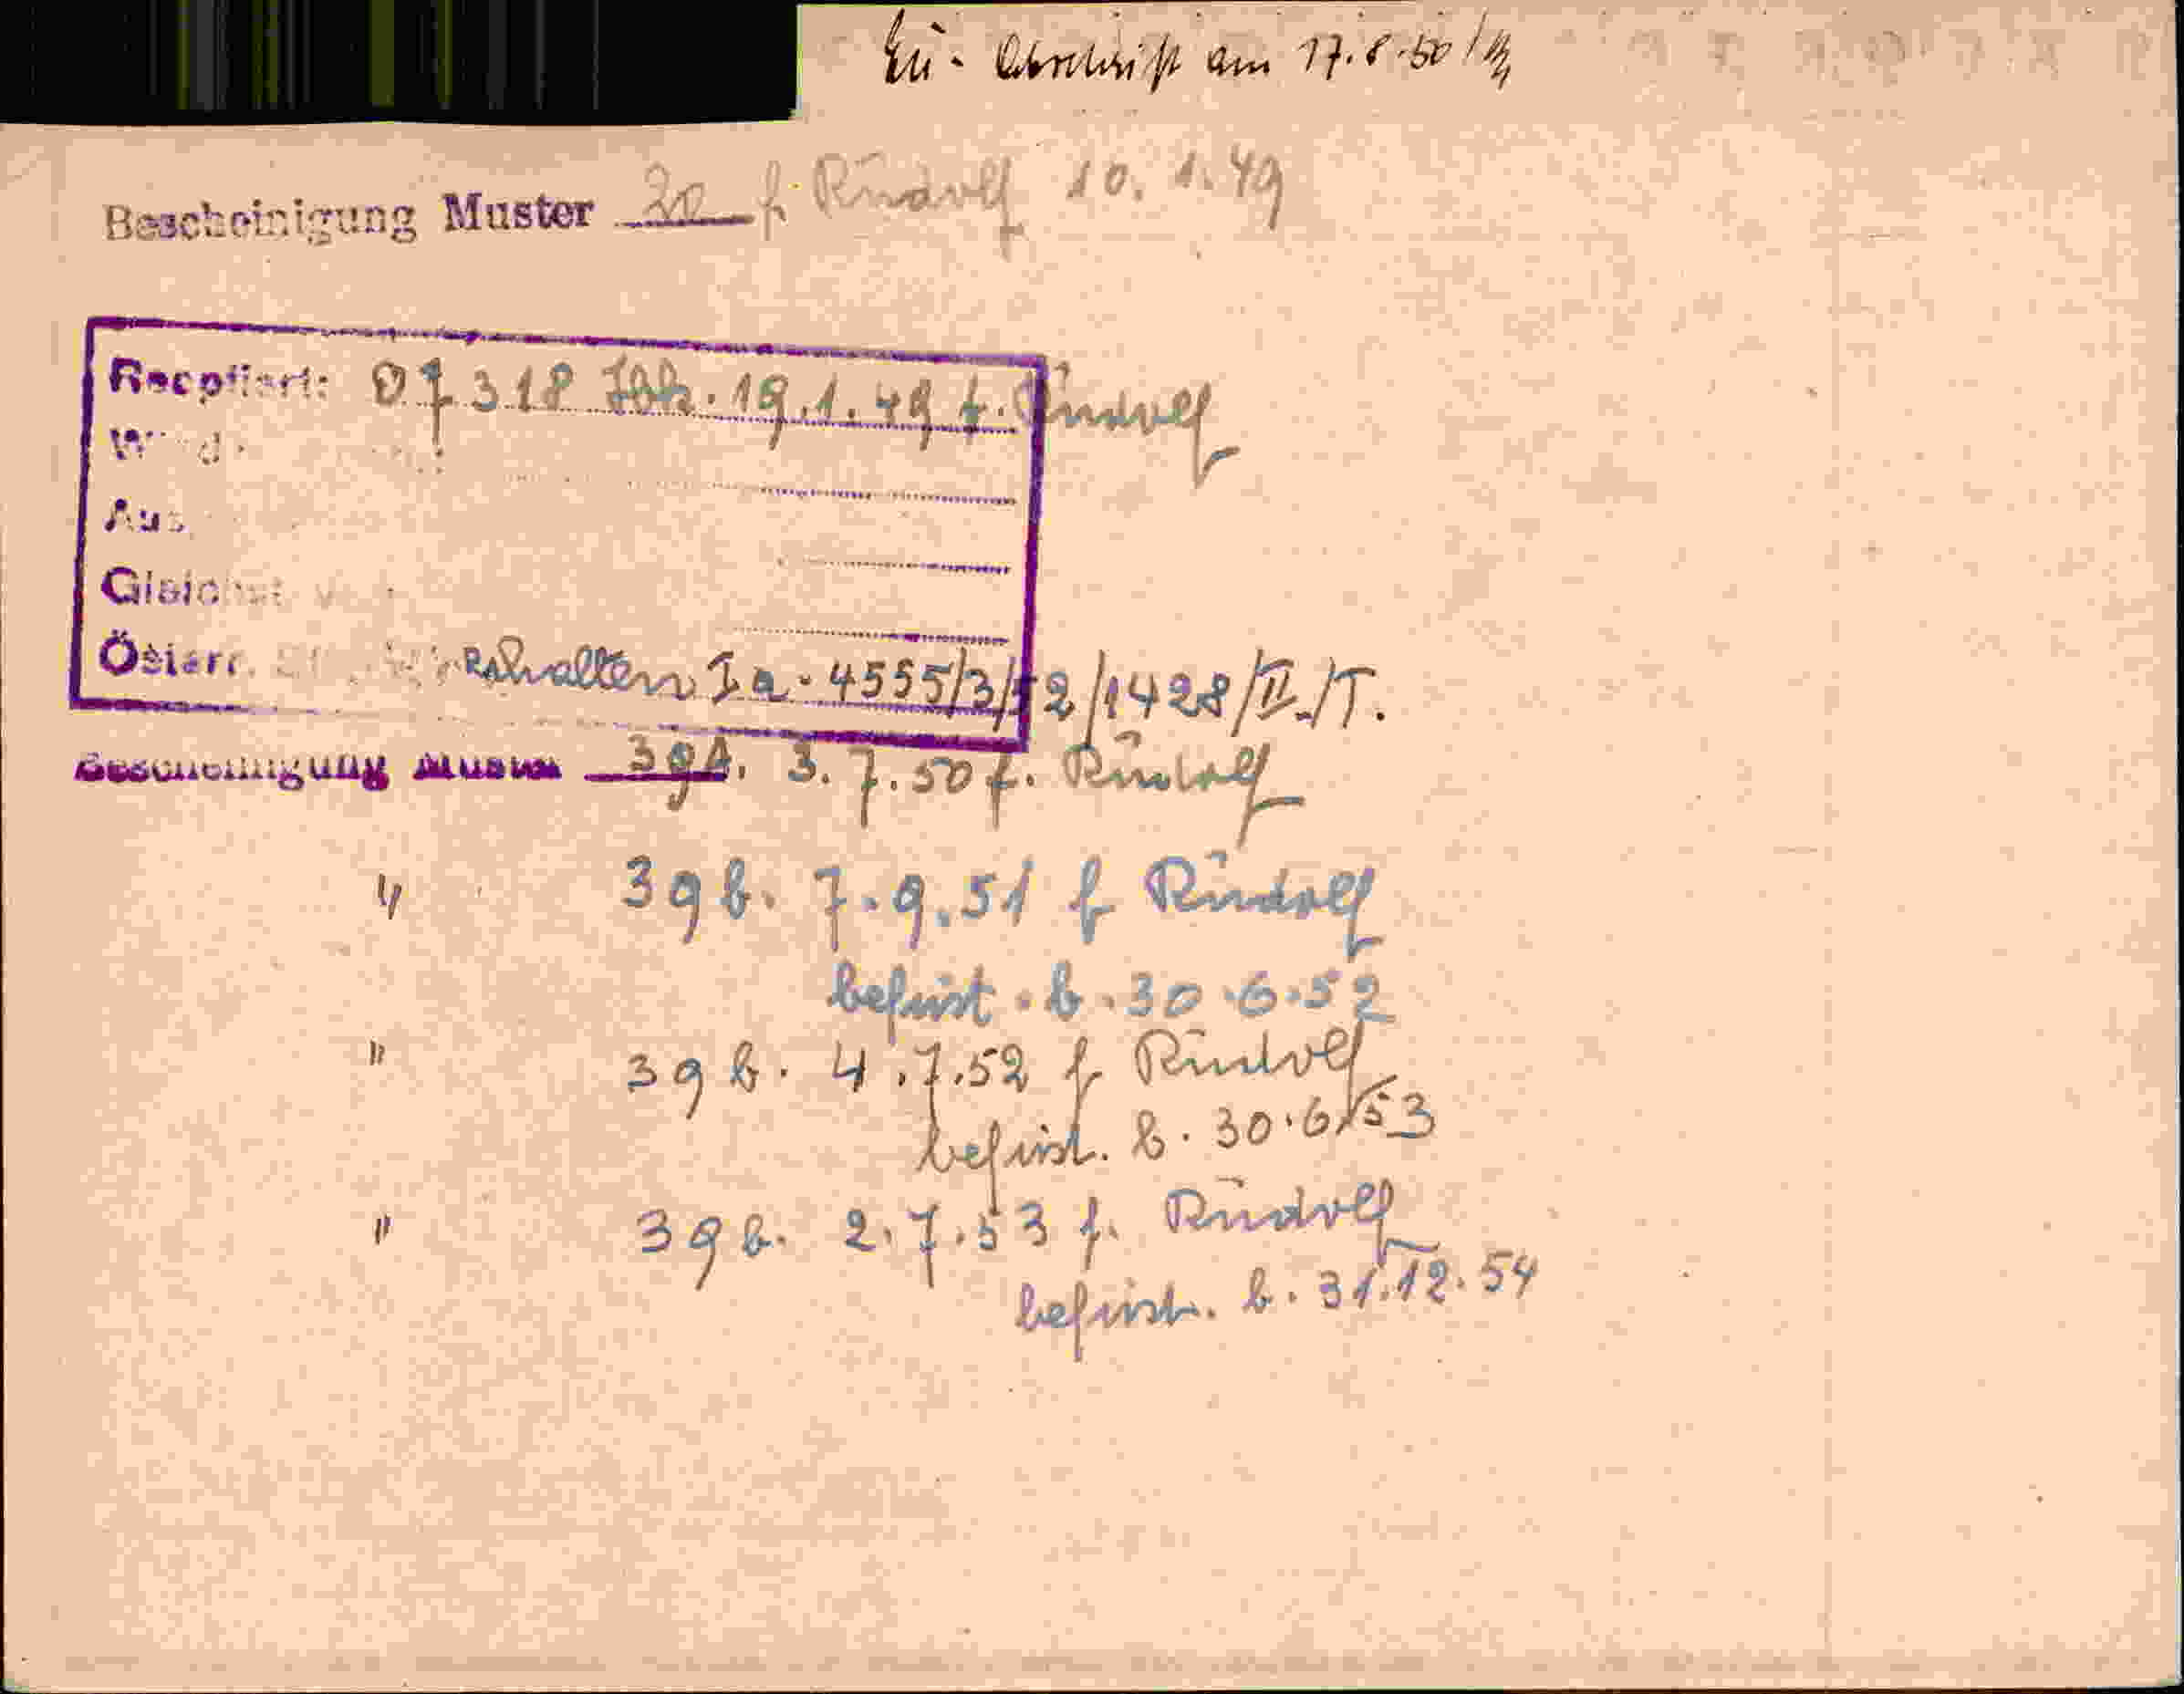 Abschrift am 17.8.50
Bescheinigung Muster 20 f. Rudolf 10.1.49
Reoptiert: 07318 19.1.49 f. Rudolf
Aus
Österr. erhalten Ia-4555/3/52/1428/II./T.
Bescheinigung Muster 39A. 3.7.50 f. Rudolf
" 39b. 7.9.51 f Rudolf
befrist. b. 30.6.52
" 39b. 4.7.52 f Rudolf
befrist. b. 30.6.53
" 39b. 2.7.53 f. Rudolf
befrist. b. 31.12.54